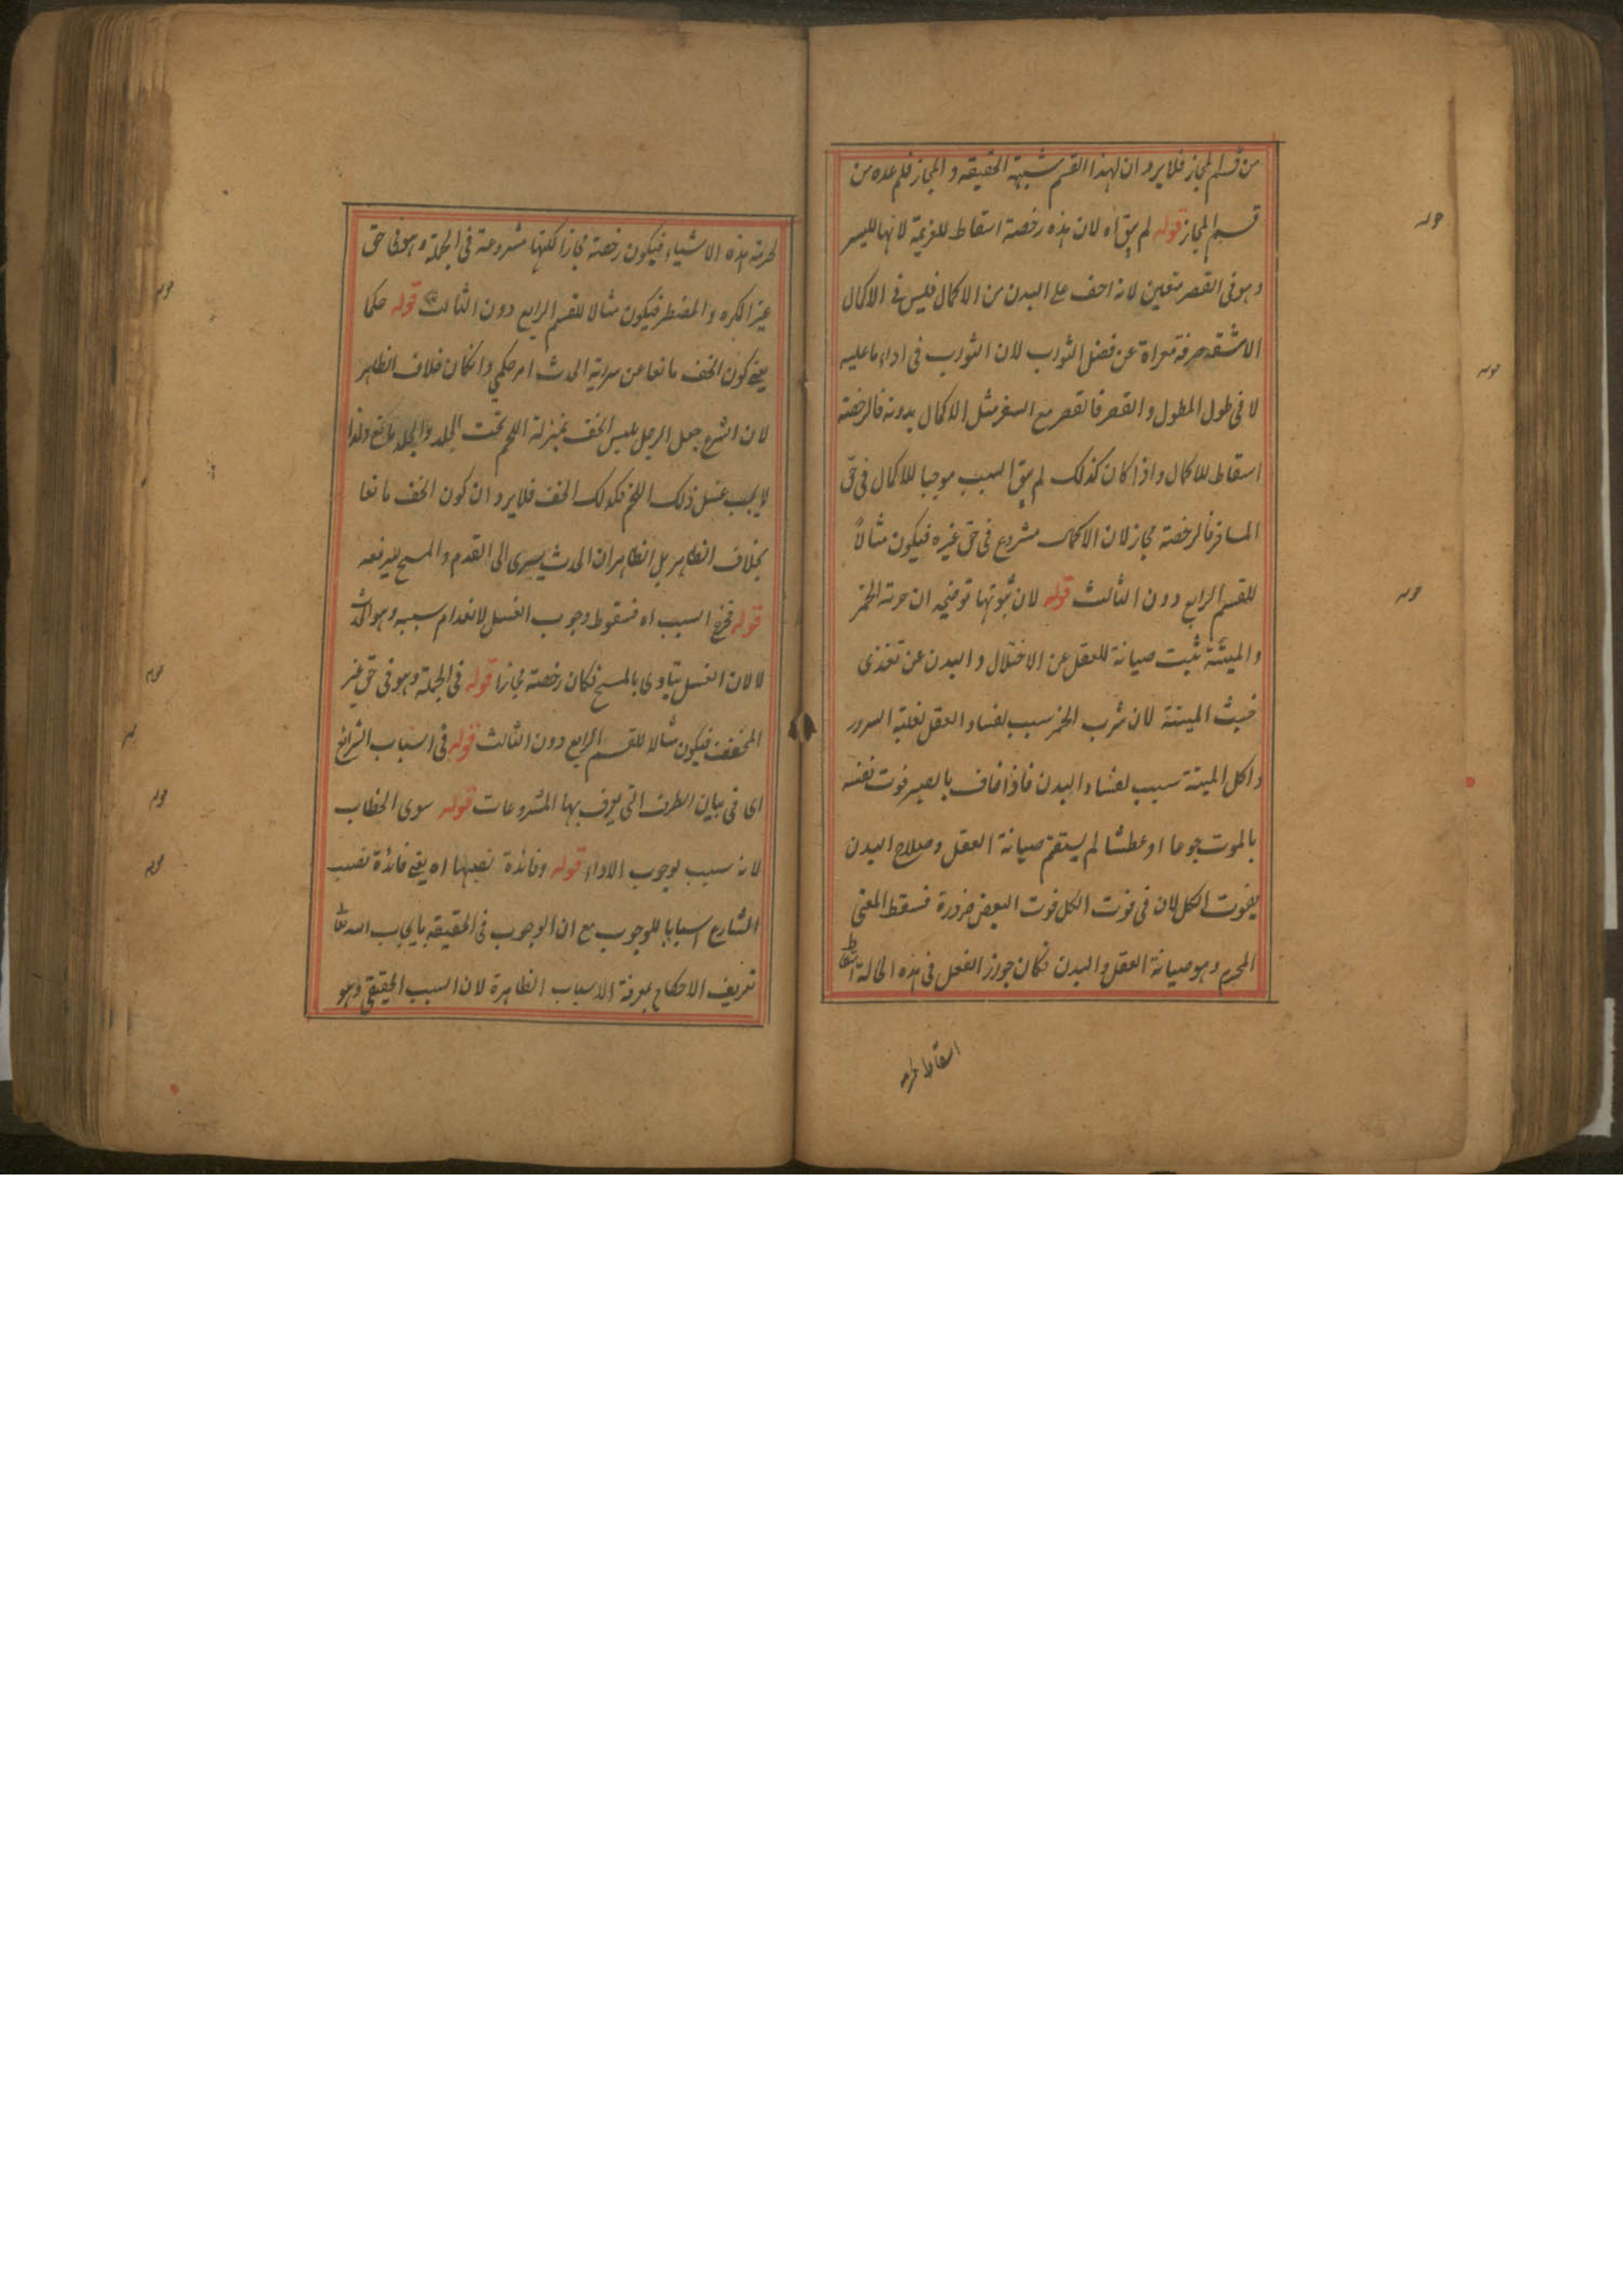 من قسم المجاز فلا يرد ان لهذا القسم شبهة الحقيقة و المجاز فلم عده من
قسم المجاز قوله لم يبق اه لان هذه رخصة اسقاط للعزيمة لانها لليسر
وهو فى القصر متعين لانه اخف على البدن من الاكمال فليس فى الاكمال
الا مشقة صرفة معراة عن فضل الثواب لان الثواب فى اداء ما عليه
لا فى طول المطول و القصر فالقصر مع السفر مثل الاكمال بدونه فالرخصة
اسقاط للاكمال واذا كان كذلك لم يبق السبب موجبا للاكمال فى حق
المسافر فالرخصة مجاز لان الاكمال مشروع فى حق غيره فيكون مثالاً
للقسم الرابع دون الثالث قوله لان ثبوتها توضيحه ان حرمة الخمر
والميتة ثبت صيانة للعقل عن الاختلال و البدن عن تغذى
خبث الميتة لان شرب الخمر سبب لفساد العقل لغلبة السرور
واكل الميتة سبب لفساد البدن فاذا خاف بالصبر فوت نفسه
بالموت جوعا او عطشا لم يستقم صيانة العقل وصلاح البدن
بفوت الكل لان فى فوت الكل فوت البعض ضرورة فسقط المعنى
المحرم وهو صيانة العقل والبدن فكان جواز الفعل فى هذه الحالة اسقاط
اسقاط لحرمة
لحرمة هذه الاشياء فيكون رخصة مجازا لكنها مشروعة فى الجملة وهو فى حق
غير المكره و المضطر فيكون مثالا للقسم الرابع دون الثالث قوله حكما
يعنى كون الخف مانعا عن سراية الحدث امر حكمي وان كان خلاف الظاهر
لان الشرع جعل الرجل بلبس الخف بمنزلة اللحم تحت الجلد والجلد مانع ولذا
لا يجب غسل ذلك اللحم فكذلك الخف فلا يرد ان كون الخف مانعا
بخلاف الظاهر بل الظاهر ان الحدث يسرى الى القدم والمسح يرفعه
قوله فخرج السبب اه فسقوط وجوب الغسل لانعدام سببه وهو الحدث
لا لان الغسل يتادى بالمسح فكان رخصة مجازا قوله فى الجملة وهو فى حق غير
المتخفف فيكون مثالا للقسم الرابع دون الثالث قوله فى اسباب الشرائع
اى فى بيان الطرق التى يعرف بها المشروعات قوله سوى الخطاب
لانه سبب لوجوب الاداء قوله وفائدة نصبها اه يعنى فائدة نصب
الشارع اسبابا للوجوب مع ان الوجوب فى الحقيقة بايجاب الله تعا
تعريف الاحكام بمعرفة الاسباب الظاهرة لان السبب الحقيقى وهو